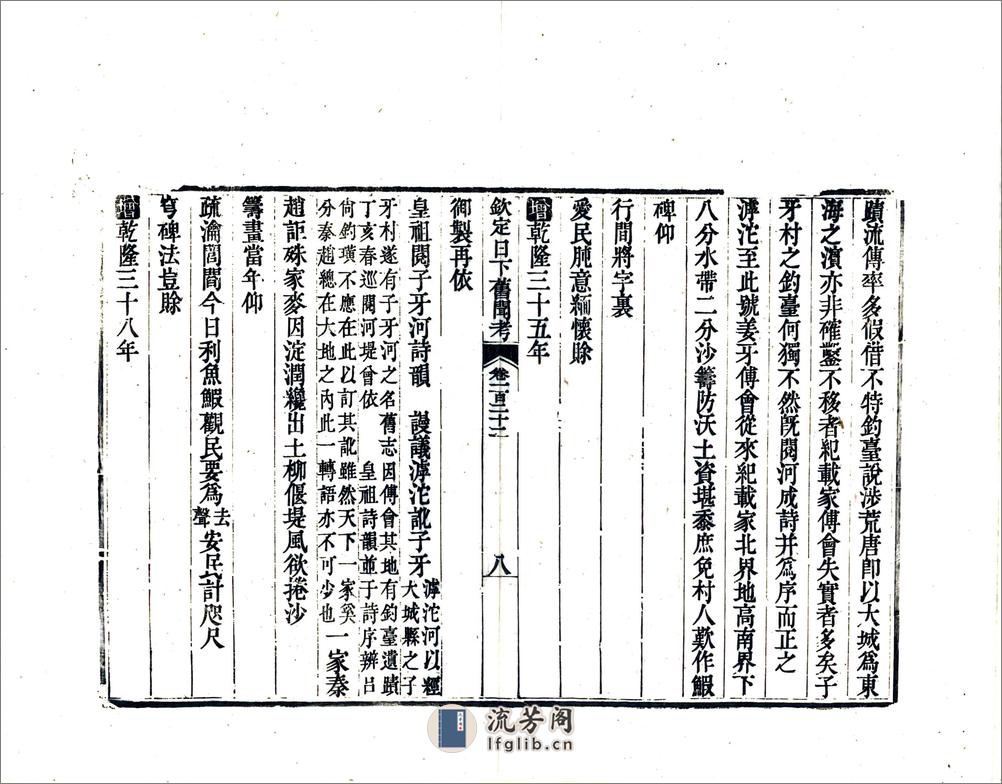 蹟流傳率多假借不特釣臺說涉荒唐即以大城爲東
海之濱亦非確鑿不移者紀載家傅會失實者多矣子
牙村之釣臺何獨不然旣閱河成詩并爲序而正之
滹沱至此號姜牙傅會從來紀載家北界地高南界下
八分水帶二分沙籌防沃土資堪黍庶免村人歎作鰕
碑仰
行間將字裏
愛民肫意緬懷賒
增乾隆三十五年
欽定日下舊聞考 卷一百二十二 八
御製再依
皇祖閱子牙河詩韻 謾議滹沱訛子牙 滹沱河以經大城縣之子
牙村遂有子牙河之名舊志因傅會其地有釣臺遺蹟
丁亥春巡閱河堤曾依 皇祖詩韻並于詩序辨吕
尙釣璜不應在此以訂其訛雖然天下一家奚
分秦趙總在大地之內此一轉語亦不可少也 一家秦
趙詎殊家麥因淀潤纔出土柳偃堤風欲捲沙
籌畫當年仰
疏瀹閭閻今日利魚鰕觀民要爲去聲安民計咫尺
穹碑法豈賒
增乾隆三十八年
流芳阁
lfglib.cn